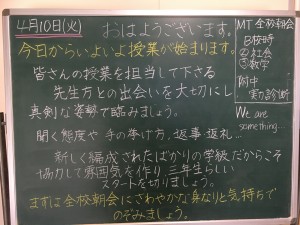 4月10日(火)
おはようございます。
今日からいよいよ授業が始まります。
皆さんの授業を担当して下さる
先生方との出会いを大切にし
真剣な姿勢で臨みましょう。
聞く態度や手の挙げ方、返事、返礼…
新しく編成されたばかりの学級だからこそ
協力して雰囲気を作り、三年生らしい
スタートを切りましょう。
まずは全校朝会にさわやかな身なりと気持ちで
のぞみましょう。
MT 全校朝会
B校時
②社会
③数学
実力診断
We are
something...